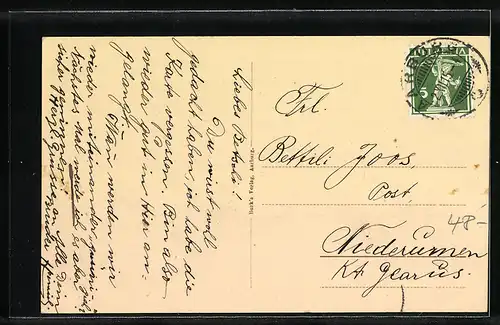 Liebes Betheli!
Du wirst wohl
gedacht haben ich habe die
Karte vergessen. Bin also
wieder gut in Hier an-
gelangt.
Wann werden wir
wieder miteinander
Nächstes mal ich es aber
sicher
Herzl. Grüsse an Alle Dein
Frl.
Bethli Joos,
Post,
Niederurnen
Kt. Glarus.
48-
ARBON
5